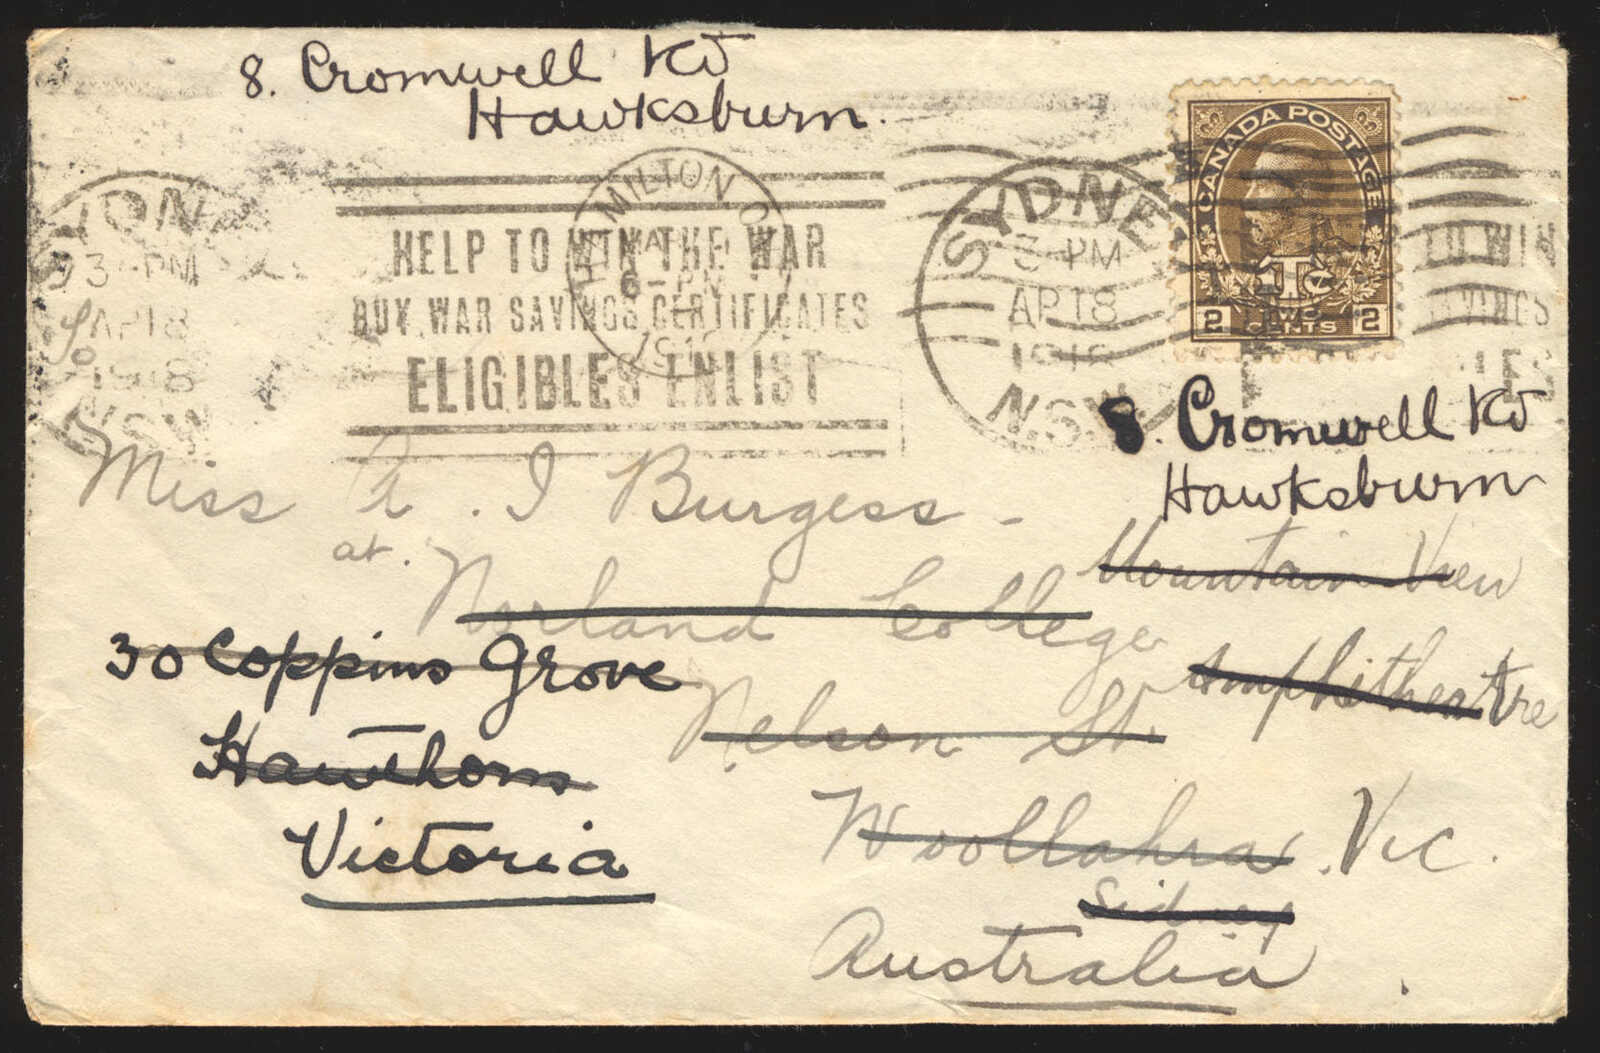 8. Cromwell Rd
Hawksburn.
SYDN
3-PM
AP 18
1918
N.S.W
HELP TO WIN THE WAR
BUY WAR SAVINGS CERTIFICATES
ELIGIBLES ENLIST
HAMILTON
6-PM
SYDNEY
3-PM
AP 18
1918
N.S.W
CANADA POSTAGE
1Tc
2 TWO CENTS 2
TO WIN
SAVINGS
8. Cromwell Rd
Hawksburn
Miss A. I Burgess -
at. Norland College
Nelson St.
Woollahra
Sidney
Australia
Mountain View
Amphitheatre
Vic.
30 Coppins Grove
Hawthorn
Victoria